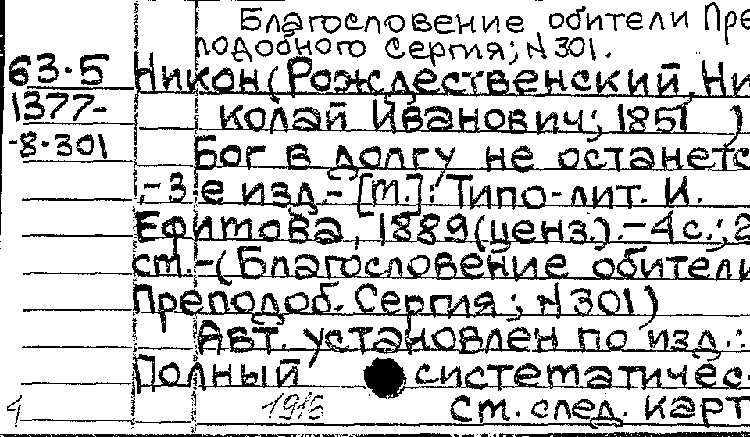 Благословение обители Пре
подобного Сергия; N 301.
63.5 Никон (Рождественский, Ни
1377- колай Иванович; 1851 )
-8.301 Бог в долгу не останетс
.-3-е изд.-[m.]: Типо-лит. И.
Ефитова, 1889(ценз.).-4с.; 2
ст.-(Благословение обители
Преподоб. Сергия; N 301)
Авт. установлен по изд.:
Полный систетатичес-
4 1916 ст. след. карт